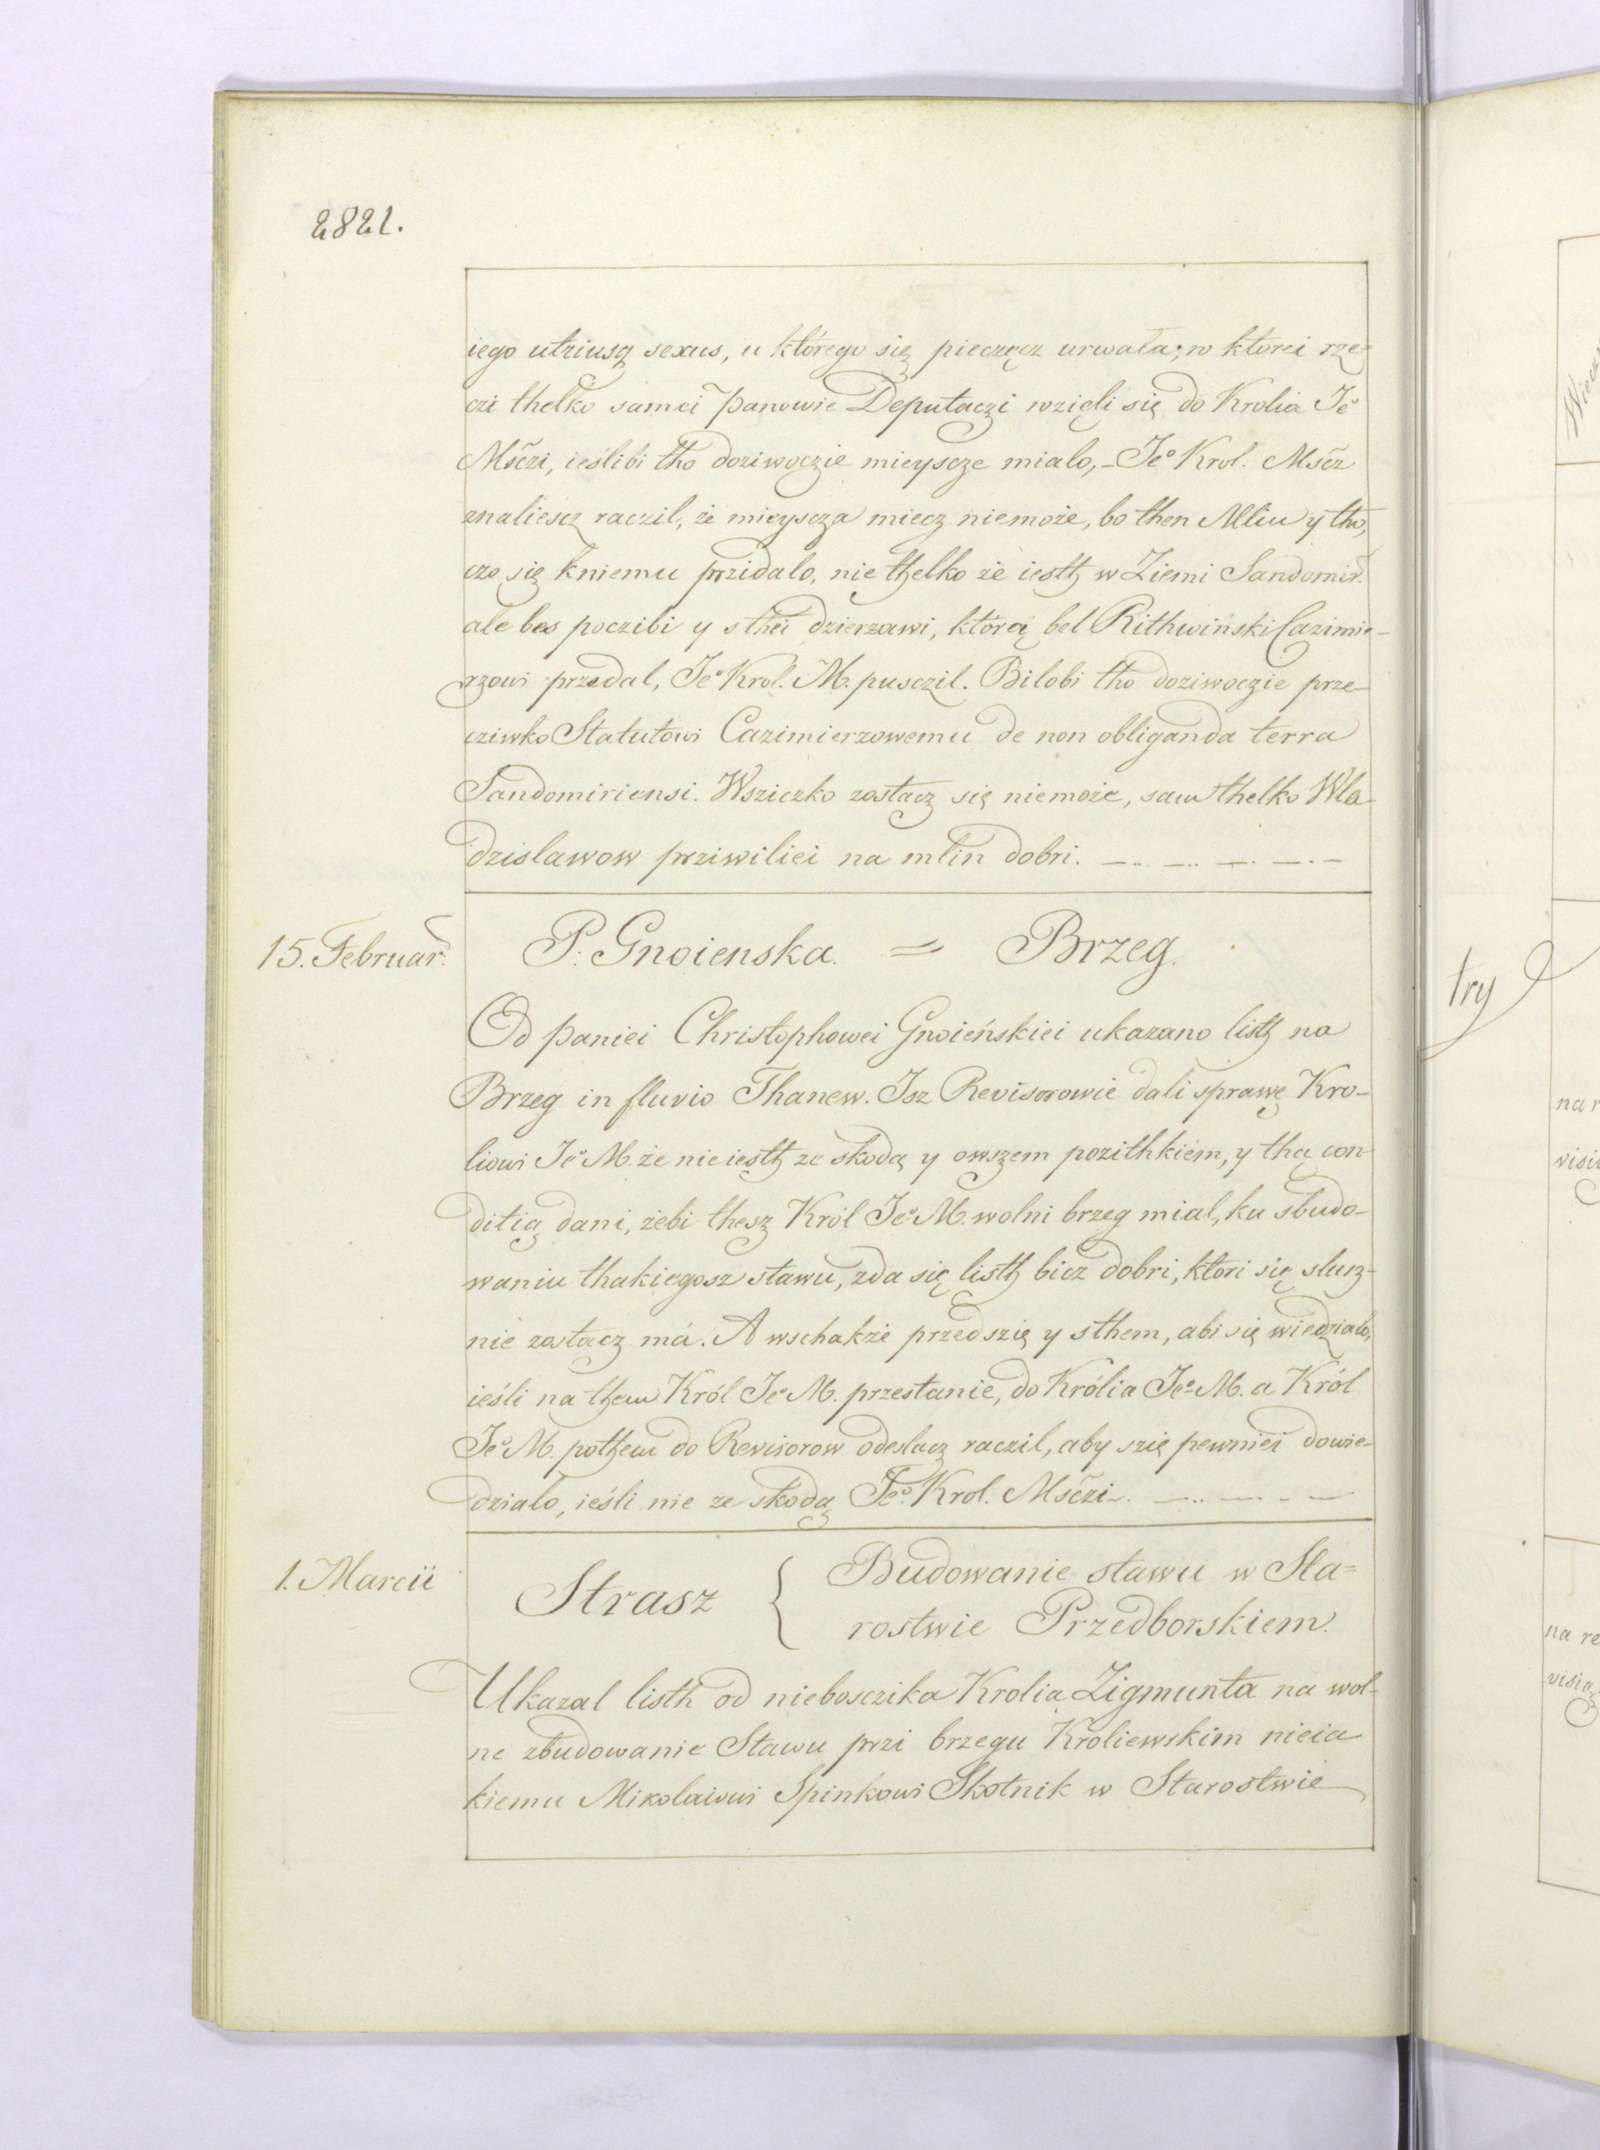 2821.
iego utriusq sexus, u którego się pieczęcz urwała, w ktorei rze-
czi thelko samei Panowie Deputaczi wzięli się do Krolia Jeº
Mśczi, ieślibi tho doziwoczie mieyscze mialo, – Jeº Krol. Mścz
znaliescz raczil, że mieyscza miecz niemoże, bo then Mlin y tho,
czo się kniemu przidalo, nie thelko że iesth w Ziemi Sandomir.
ale bes poczibi y s thei dzierzawi, którą bel Rithwiński Cazimie-
rzowi przedal, Jeº Krol. M. pusczil. Bilobi tho doziwoczie prze
cziwko Statutowi Cazimierzowemu de non obliganda terra
Sandomiriensi. Wsziczko zostacz się niemoże, sam thelko Wla-
dzislawow prziwiliei na mlin dobri.
15. Februar.
P. Gnoienska. = Brzeg.
Od Paniei Christophowei Gnoieńskiei ukazano listh na
Brzeg in fluvio Thanew. Isz Revisorowie dali sprawę Kro-
liowi Jeº M. że nie iesth ze skodą y owszem pozithkiem, y thą con-
ditią dani, żebi thesz Król Jeº M. wolni brzeg mial, ku sbudo-
waniu thakiegosz stawu, zda się listh bicz dobri, ktori się slusz-
nie zostacz má. A wschakże przedszię y sthem, abi się wiedzialo,
ieśli na them Król Jeº M. przestanie, do Królia Jeº M. a Król
Jeº M. pothem do Revisorow odeslacz raczil, aby szię pewniei dowie-
dzialo, ieśli nie ze skodą Jeº Krol. Mśczi.
1. Marcii
Strasz { Budowanie stawu w Sta=
rostwie Przedborskiem.
Ukazal listh od niebosczika Krolia Zigmunta na wol-
ne zbudowanie Stawu przi brzegu Kroliewskim nieia
kiemu Mikolaiowi Spinkowi Skotnik w Starostwie
try
na r
visi
na re
visią